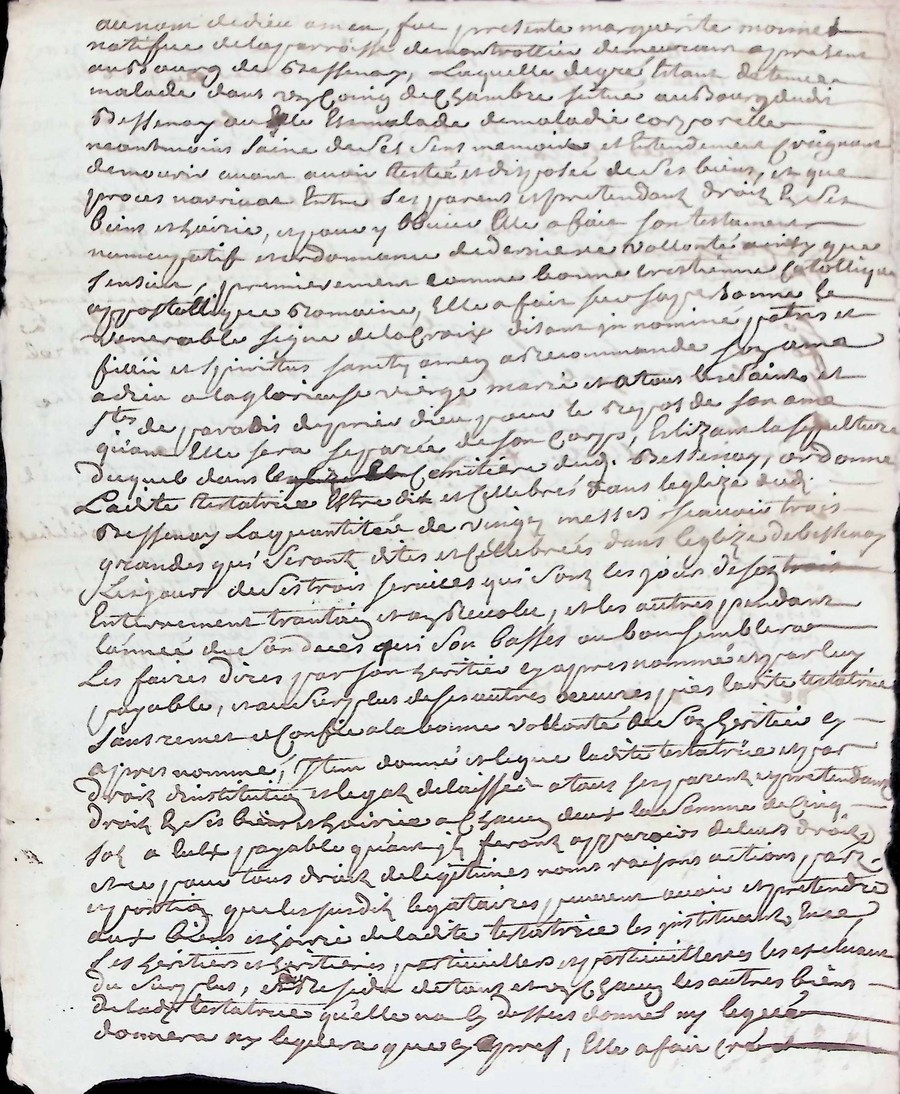 au nom de dieu amen, fue presente marguerite monnet
natifue de la parroisse de montrottier demeurant a present
au Bourg de Bessenay, Laquelle de gré Etant detenue
malade dans un Coing de Chambre situé au Bourg dudit
Bessenay au Lit Et malade de maladie corporelle
neantmoins saine de ses sens memoire et Entendement Craignant
de mourir avant avoir testée et disposée de ses biens, et que
proces narrivat Entre ses parens et pretendant droit En ses
biens et hoirie, et pour y obvier Elle a fait son testament
nuncupatif et ordonnance de derniere vollonté ainsy que
sensuit, premierement comme bonne cretienne Catollique
appostollique Romaine, Elle a fait sur sa personne le
venerable signe de la Croix disant in nomine patris et
fillii et spiritus sancty amen a Recommandé son ame
a dieu a la glorieuse vierge marie et a tous les saints et
stes de paradis de prier dieu pour le Repos de son ame
quant Elle sera separée de son Corps, Elizant la sepulture
duquel dans le Cemitiere dud. Bessenay, ordonne
Ladite testatrice Estre dit et Cellebrés dans leglize dud.
Bessenay La quantitée de vingt messes scavoir trois
grandes qui seront dites et Cellebrées dans leglize de bessenay
Les jours de ses trois services qui sont les jours de son
Enterrement trantain et an Revolu, et les autres pendant
lannée de son deces qui son basses au bon semblera
Les faires dires par son heritier cy apres nommé et par luy
payable, et au surplus de ses autres oeuvres pies ladite testatrice
sant remet et Confie a la bonne vollonté de son heritier cy
apres nommé, Item donne et legue ladite testatrice et par
droit dinstitution et legat delaissée a tous ses parent et pretendant
droit En ses biens et hoirie a Chacun deux la somme de Cinq
sols a Eux payable quant ils seront apparoir de leurs droits
et ce pour tous droit de legitimes noms raisons actions, part
et portion que les susdit legataires, peuvent avoir et pretendre
aux biens et hoirie de ladite testatrice les instituant En ce
ses heritiers et heritieres, particulliers et particullieres les excluant
du surplus, et au Residu de tous et un Chacun les autres biens
de lad. testatrice quelle na cy dessus donné ny legué
donnera ny leguera que cy apres, Elle a fait créé